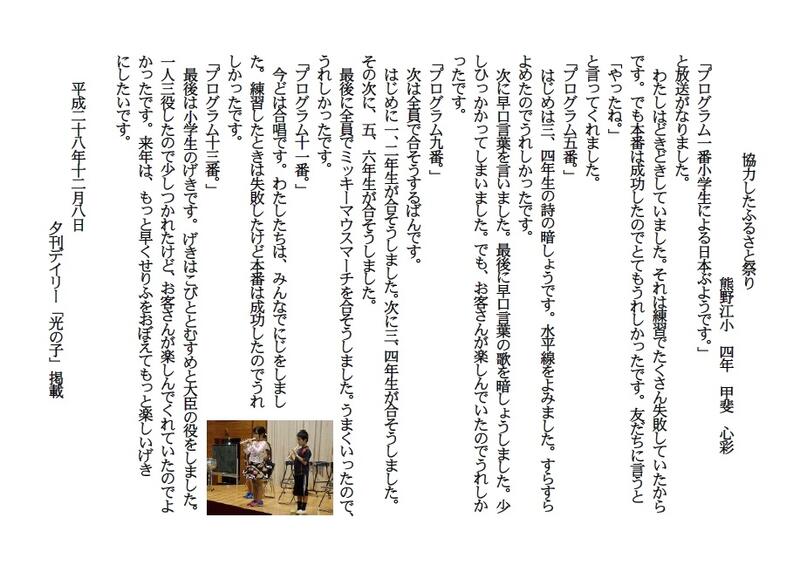 協力したふるさと祭り
熊野江小　四年　甲斐　心彩
「プログラム一番小学生による日本ぶようです。」
と放送がなりました。
わたしはどきどきしていました。それは練習でたくさん失敗していたから
です。でも本番は成功したのでとてもうれしかったです。友だちに言うと
「やったね。」
と言ってくれました。
「プログラム五番。」
はじめは三、四年生の詩の暗しょうです。水平線をよみました。すらすら
よめたのでうれしかったです。
次に早口言葉を言いました。最後に早口言葉の歌を暗しょうしました。少
しひっかかってしまいました。でも、お客さんが楽しんでいたのでうれしか
ったです。
「プログラム九番。」
次は全員で合そうするばんです。
はじめに一、二年生が合そうしました。次に三、四年生が合そうしました。
その次に、五、六年生が合そうしました。
最後に全員でミッキーマウスマーチを合そうしました。うまくいったので、
うれしかったです。
「プログラム十一番。」
今どは合唱です。わたしたちは、みんなでにじをしまし
た。練習したときは失敗したけど本番は成功したのでうれ
しかったです。
「プログラム十三番。」
最後は小学生のげきです。げきはこびととむすめと大臣の役をしました。
一人三役したので少しつかれたけど、お客さんが楽しんでくれていたのでよ
かったです。来年は、もっと早くせりふをおぼえてもっと楽しいげき
にしたいです。
平成二十八年十二月八日
夕刊デイリー「光の子」掲載